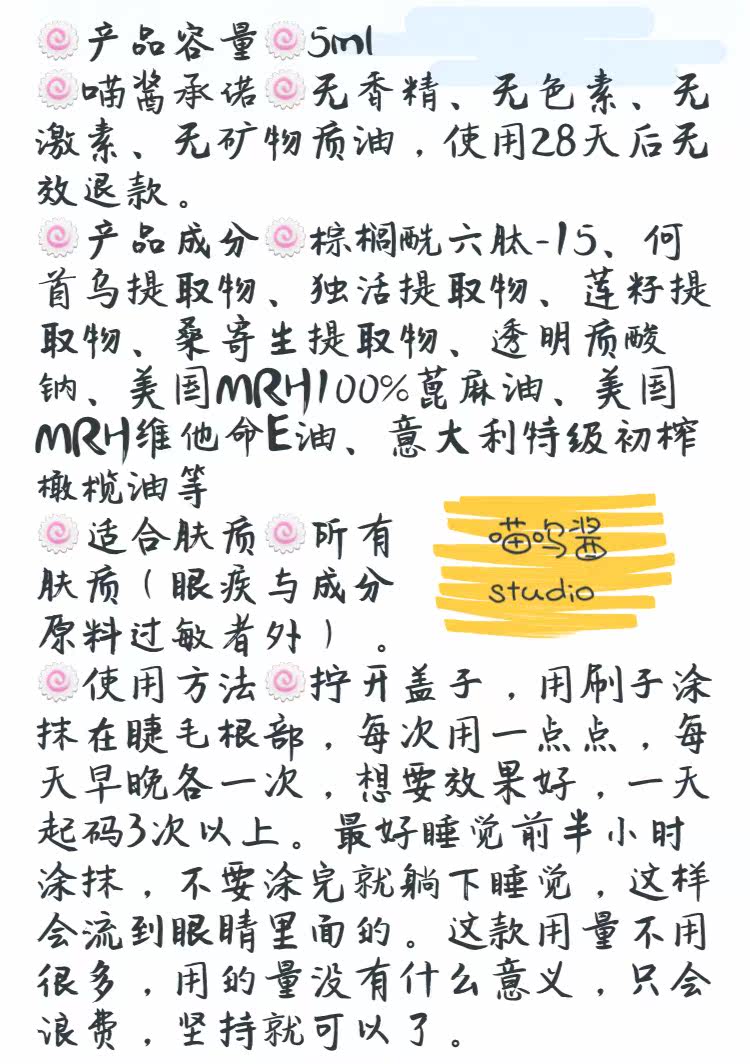 🍥产品容量🍥5ml
🍥喵酱承诺🍥无香精、无色素、无
激素、无矿物质油，使用28天后无
效退款。
🍥产品成分🍥棕榈酰六肽-15、何
首乌提取物、独活提取物、莲籽提
取物、桑寄生提取物、透明质酸
钠、美国MRH100%蓖麻油、美国
MRH维他命E油、意大利特级初榨
橄榄油等
🍥适合肤质🍥所有
肤质（眼疾与成分
原料过敏者外）。
喵呜酱
studio
🍥使用方法🍥拧开盖子，用刷子涂
抹在睫毛根部，每次用一点点，每
天早晚各一次，想要效果好，一天
起码3次以上。最好睡觉前半小时
涂抹，不要涂完就躺下睡觉，这样
会流到眼睛里面的。这款用量不用
很多，用的量没有什么意义，只会
浪费，坚持就可以了。